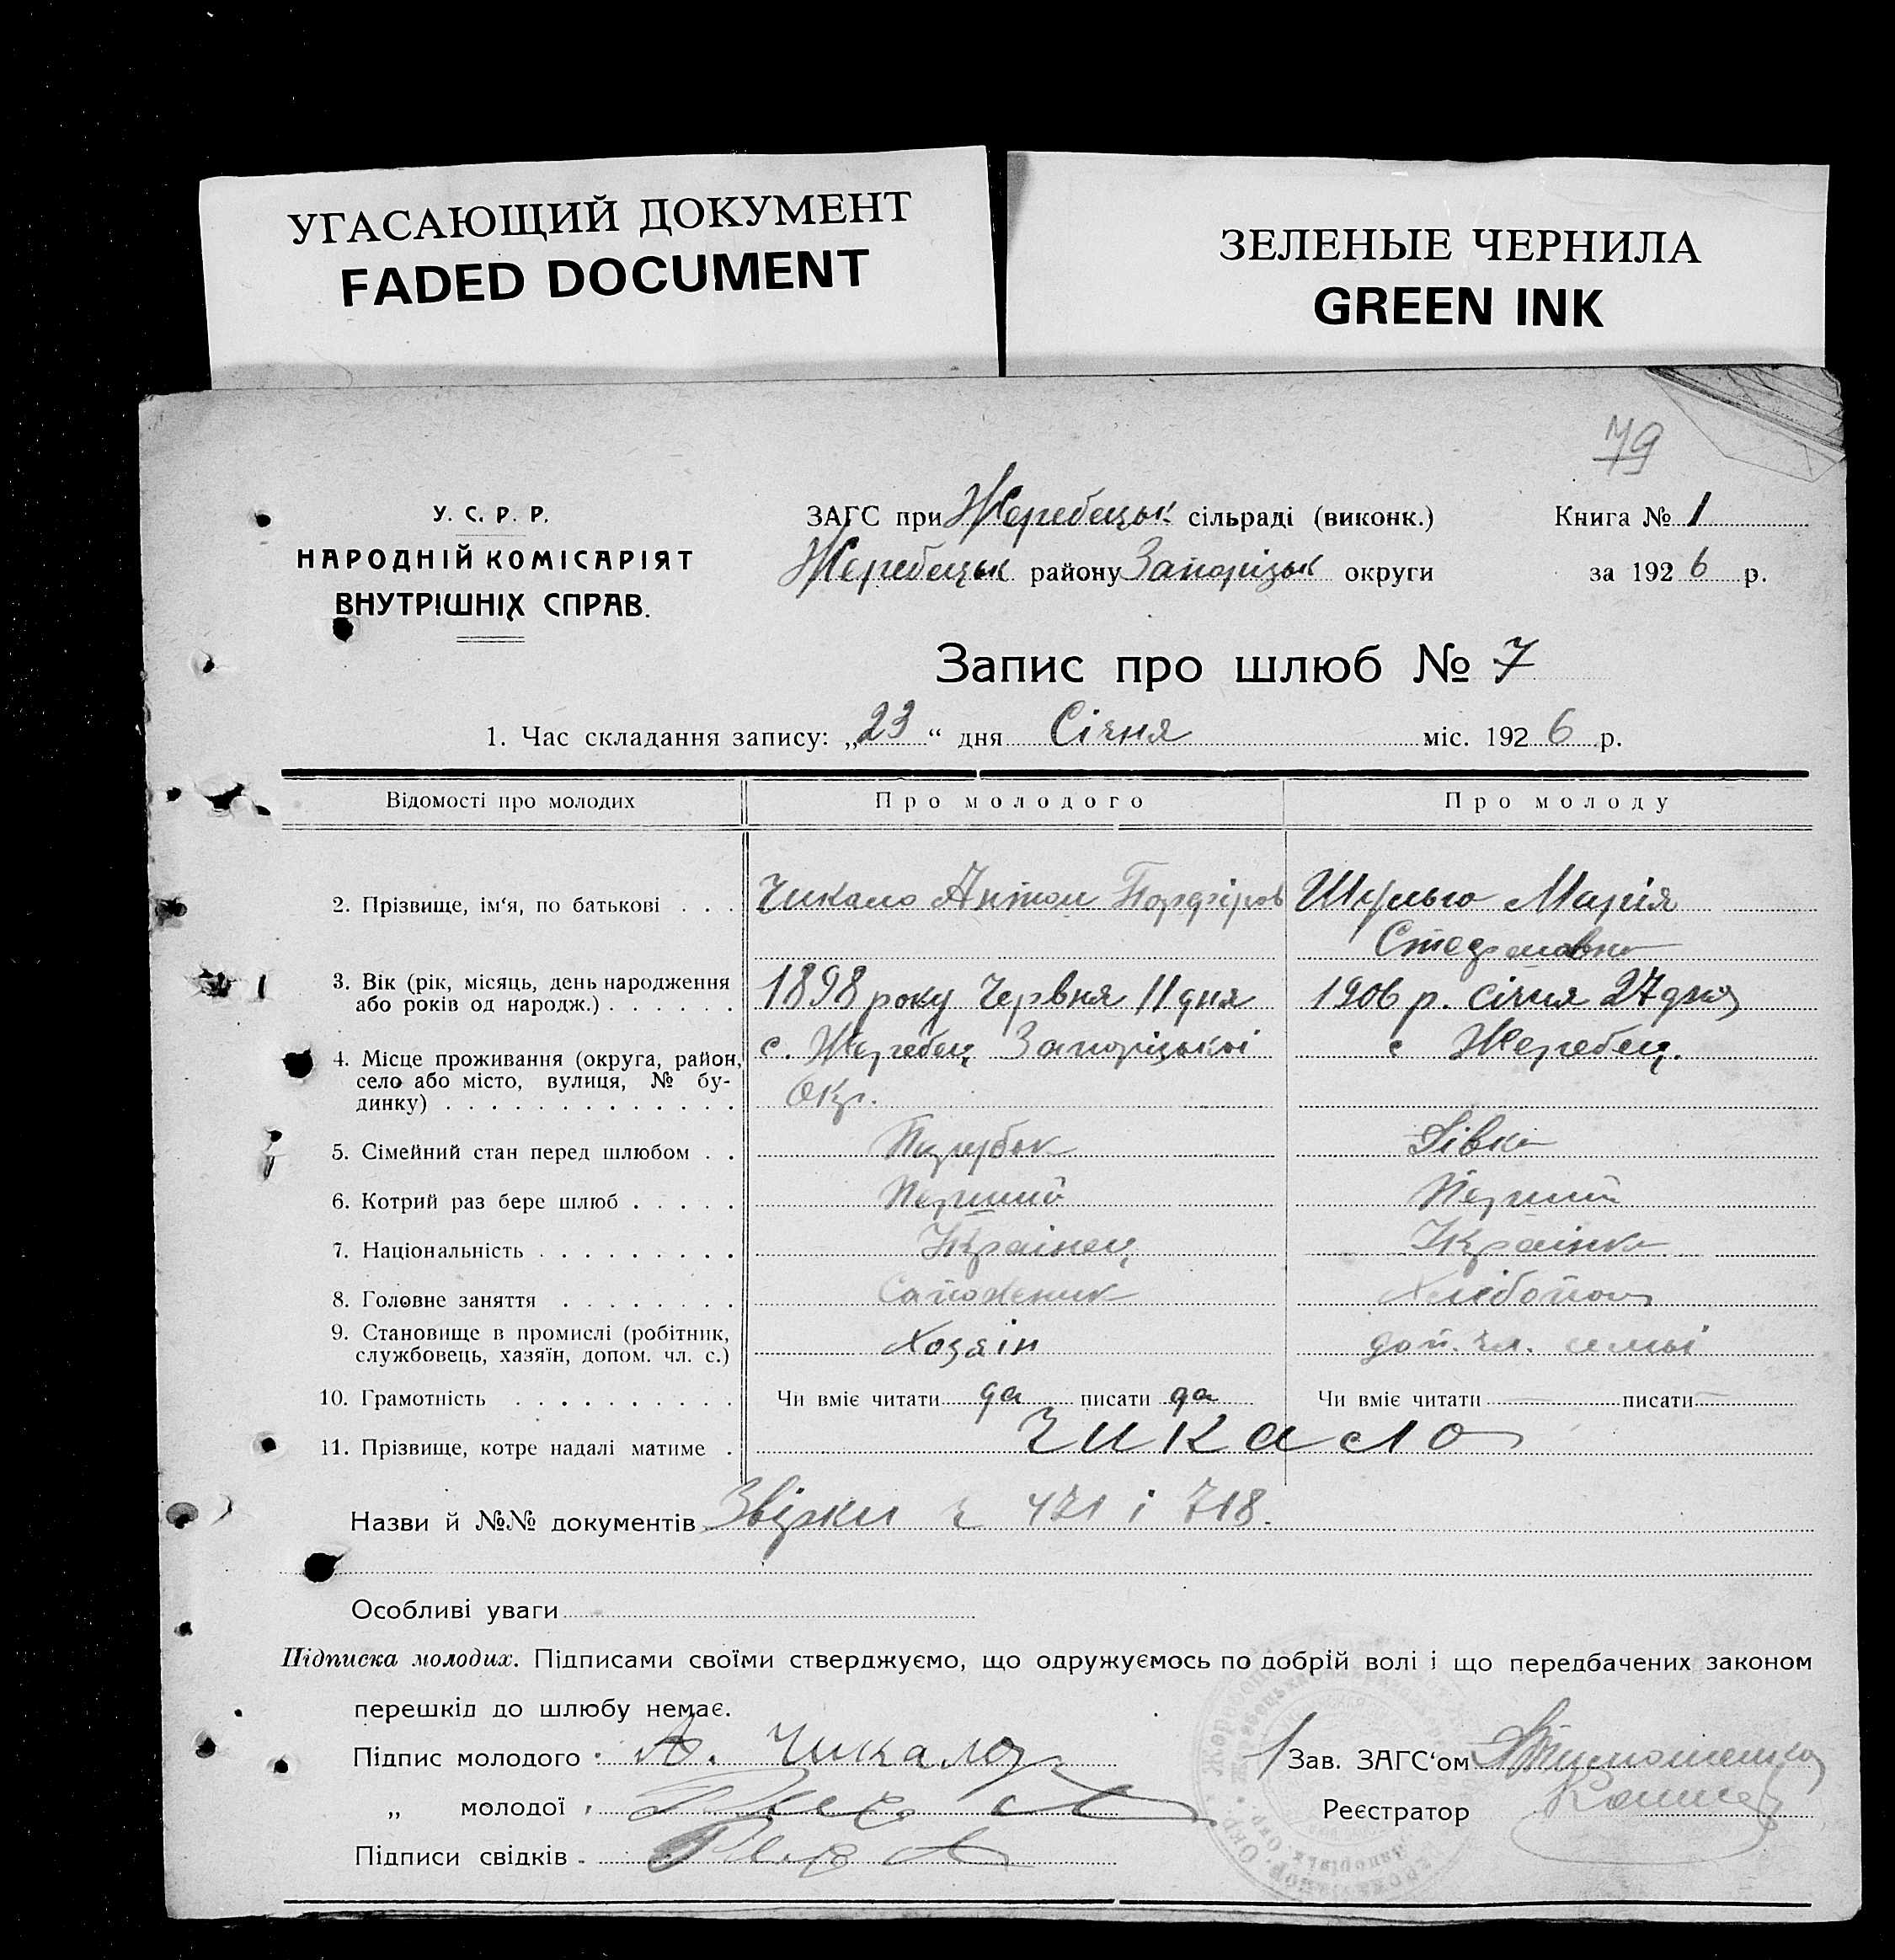 УГАСАЮЩИЙ ДОКУМЕНТ
FADED DOCUMENT
ЗЕЛЕНЫЕ ЧЕРНИЛА
GREEN INK
79
У. С. Р. Р.
НАРОДНІЙ КОМІСАРІЯТ
ВНУТРІШНІХ СПРАВ.
ЗАГС при Жеребецьк сільраді (виконк.)
Жеребецьк району Запорізьк округи
Книга № 1
за 1926 р.
Запис про шлюб № 7
1. Час складання запису: „23“ дня Січня міс. 1926 р.
Відомості про молодих Про молодого Про молоду
2. Прізвище, ім'я, по батькові . . . Чикало Антон Порфіров Марія
Стефановна
3. Вік (рік, місяць, день народження
або років од народж.) . . . . . . 1898 року Червня 11 дня 1906 р. Січня 27 дня
4. Місце проживання (округа, район,
село або місто, вулиця, № бу-
динку) . . . . . . . . . . . . . с. Жеребец Запорізькоі
Окр.
с Жеребец.
5. Сімейний стан перед шлюбом . . Парубок Дівка
6. Котрий раз бере шлюб . . . . . Перший Перший
7. Національність . . . . . . . . . Украінец Украінка
8. Головне заняття . . . . . . . . Сапожник Хлібопаш
9. Становище в промислі (робітник,
службовець, хазяїн, допом. чл. с.) Хозяін доп. чл. семьі
10. Грамотність . . . . . . . . . . Чи вміє читати да писати да Чи вміє читати — писати —
11. Прізвище, котре надалі матиме . Чикало
Назви й №№ документів Звірки ч 421 і 718.
Особливі уваги
Підписка молодих. Підписами своїми стверджуємо, що одружуємось по добрій волі і що передбачених законом
перешкід до шлюбу немає.
Підпис молодого А. Чикало
„ молодої
Підписи свідків
Зав. ЗАГС‘ом
Реєстратор